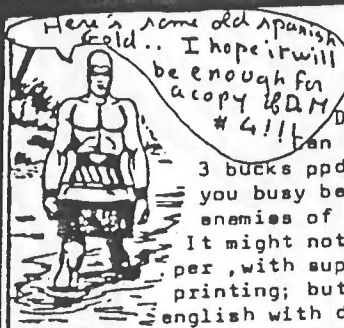 Here's some old spanish
gold.. I hope it will
be enough for
a copy of D.M
# 4!!!
D
an
3 bucks ppd
you busy be
enemies of
It might not
per ,with sup
printing; but
english with d